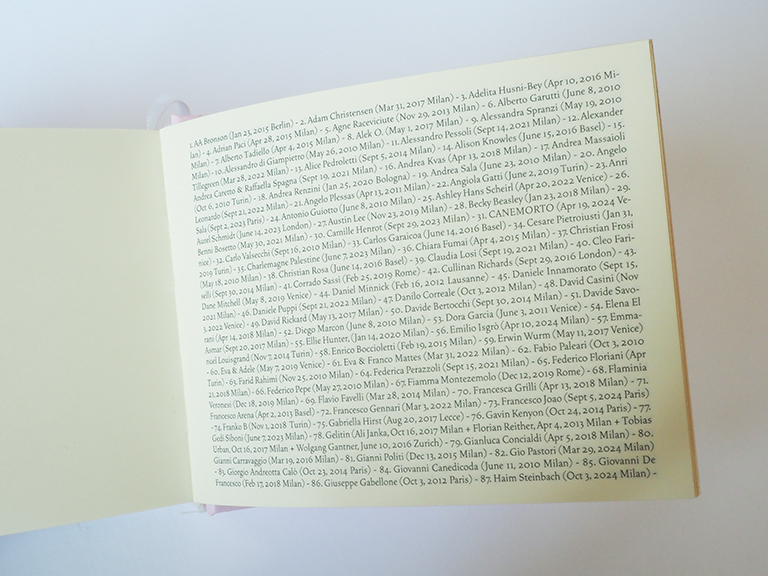 1. AA Bronson (Jan 23, 2015 Berlin) - 2. Adam Christensen (Mar 31, 2017 Milan) - 3. Adelita Husni-Bey (Apr 10, 2016 Mi-
lan) - 4. Adrian Paci (Apr 28, 2015 Milan) - 5. Agne Raceviciute (Nov 29, 2013 Milan) - 6. Alberto Garutti (June 8, 2010
Milan) - 7. Alberto Tadiello (Apr 4, 2015 Milan) - 8. Alek O. (May 1, 2017 Milan) - 9. Alessandra Spranzi (May 19, 2010
Milan) - 10. Alessandro di Giampietro (May 26, 2010 Milan) - 11. Alessandro Pessoli (Sept 14, 2021 Milan) - 12. Alexander
Tillegreen (Mar 28, 2022 Milan) - 13. Alice Pedroletti (Sept 5, 2014 Milan) - 14. Alison Knowles (June 15, 2016 Basel) - 15.
Andrea Caretto & Raffaella Spagna (Sept 19, 2021 Milan) - 16. Andrea Kvas (Apr 13, 2018 Milan) - 17. Andrea Massaioli
(Oct 6, 2010 Turin) - 18. Andrea Renzini (Jan 25, 2020 Bologna) - 19. Andrea Sala (June 23, 2010 Milan) - 20. Angelo
Leonardo (Sept 21, 2022 Milan) - 21. Angelo Plessas (Apr 13, 2011 Milan) - 22. Angiola Gatti (June 2, 2019 Turin) - 23. Anri
Sala (Sept 2, 2023 Paris) - 24. Antonio Guiotto (June 8, 2010 Milan) - 25. Ashley Hans Scheirl (Apr 20, 2022 Venice) - 26.
Aurel Schmidt (June 14, 2023 London) - 27. Austin Lee (Nov 23, 2019 Milan) - 28. Becky Beasley (Jan 23, 2018 Milan) - 29.
Benni Bosetto (May 30, 2021 Milan) - 30. Camille Henrot (Sept 29, 2023 Milan) - 31. CANEMORTO (Apr 19, 2024 Ve-
nice) - 32. Carlo Valsecchi (Sept 16, 2010 Milan) - 33. Carlos Garaicoa (June 14, 2016 Basel) - 34. Cesare Pietroiusti (Jan 31,
2019 Turin) - 35. Charlemagne Palestine (June 7, 2023 Milan) - 36. Chiara Fumai (Apr 4, 2015 Milan) - 37. Christian Frosi
(May 18, 2010 Milan) - 38. Christian Rosa (June 14, 2016 Basel) - 39. Claudia Losi (Sept 19, 2021 Milan) - 40. Cleo Fari-
selli (Sept 30, 2014 Milan) - 41. Corrado Sassi (Feb 25, 2019 Rome) - 42. Cullinan Richards (Sept 29, 2016 London) - 43.
Dane Mitchell (May 8, 2019 Venice) - 44. Daniel Minnick (Feb 16, 2012 Lausanne) - 45. Daniele Innamorato (Sept 15,
2021 Milan) - 46. Daniele Puppi (Sept 21, 2022 Milan) - 47. Danilo Correale (Oct 3, 2012 Milan) - 48. David Casini (Nov
3, 2022 Venice) - 49. David Rickard (May 13, 2017 Milan) - 50. Davide Bertocchi (Sept 30, 2014 Milan) - 51. Davide Savo-
rani (Apr 14, 2018 Milan) - 52. Diego Marcon (June 8, 2010 Milan) - 53. Dora Garcia (June 3, 2011 Venice) - 54. Elena El
Asmar (Sept 20, 2017 Milan) - 55. Ellie Hunter, (Jan 14, 2020 Milan) - 56. Emilio Isgrò (Apr 10, 2024 Milan) - 57. Emma-
nuel Louisgrand (Nov 7, 2014 Turin) - 58. Enrico Boccioletti (Feb 19, 2015 Milan) - 59. Erwin Wurm (May 11, 2017 Venice)
- 60. Eva & Adele (May 7, 2019 Venice) - 61. Eva & Franco Mattes (Mar 31, 2022 Milan) - 62. Fabio Paleari (Oct 3, 2010
Turin) - 63. Farid Rahimi (Nov 25, 2010 Milan) - 64. Federica Perazzoli (Sept 15, 2021 Milan) - 65. Federico Floriani (Apr
21, 2018 Milan) - 66. Federico Pepe (May 27, 2010 Milan) - 67. Fiamma Montezemolo (Dec 12, 2019 Rome) - 68. Flaminia
Veronesi (Dec 18, 2019 Milan) - 69. Flavio Favelli (Mar 28, 2014 Milan) - 70. Francesca Grilli (Apr 13, 2018 Milan) - 71.
Francesco Arena (Apr 2, 2013 Basel) - 72. Francesco Gennari (Mar 3, 2022 Milan) - 73. Francesco Joao (Sept 5, 2024 Paris)
- 74. Franko B (Nov 1, 2018 Turin) - 75. Gabriella Hirst (Aug 20, 2017 Lecce) - 76. Gavin Kenyon (Oct 24, 2014 Paris) - 77.
Gedi Siboni (June 7, 2023 Milan) - 78. Gelitin (Ali Janka, Oct 16, 2017 Milan + Florian Reither, Apr 4, 2013 Milan + Tobias
Urban, Oct 16, 2017 Milan + Wolfgang Gantner, June 10, 2016 Zurich) - 79. Gianluca Concialdi (Apr 5, 2018 Milan) - 80.
Gianni Carravaggio (Mar 19, 2016 Milan) - 81. Gianni Politi (Dec 13, 2015 Milan) - 82. Gio Pastori (Mar 29, 2024 Milan)
- 83. Giorgio Andreotta Calò (Oct 23, 2014 Paris) - 84. Giovanni Canedicoda (June 11, 2010 Milan) - 85. Giovanni De
Francesco (Feb 17, 2018 Milan) - 86. Giuseppe Gabellone (Oct 3, 2012 Paris) - 87. Haim Steinbach (Oct 3, 2024 Milan) -